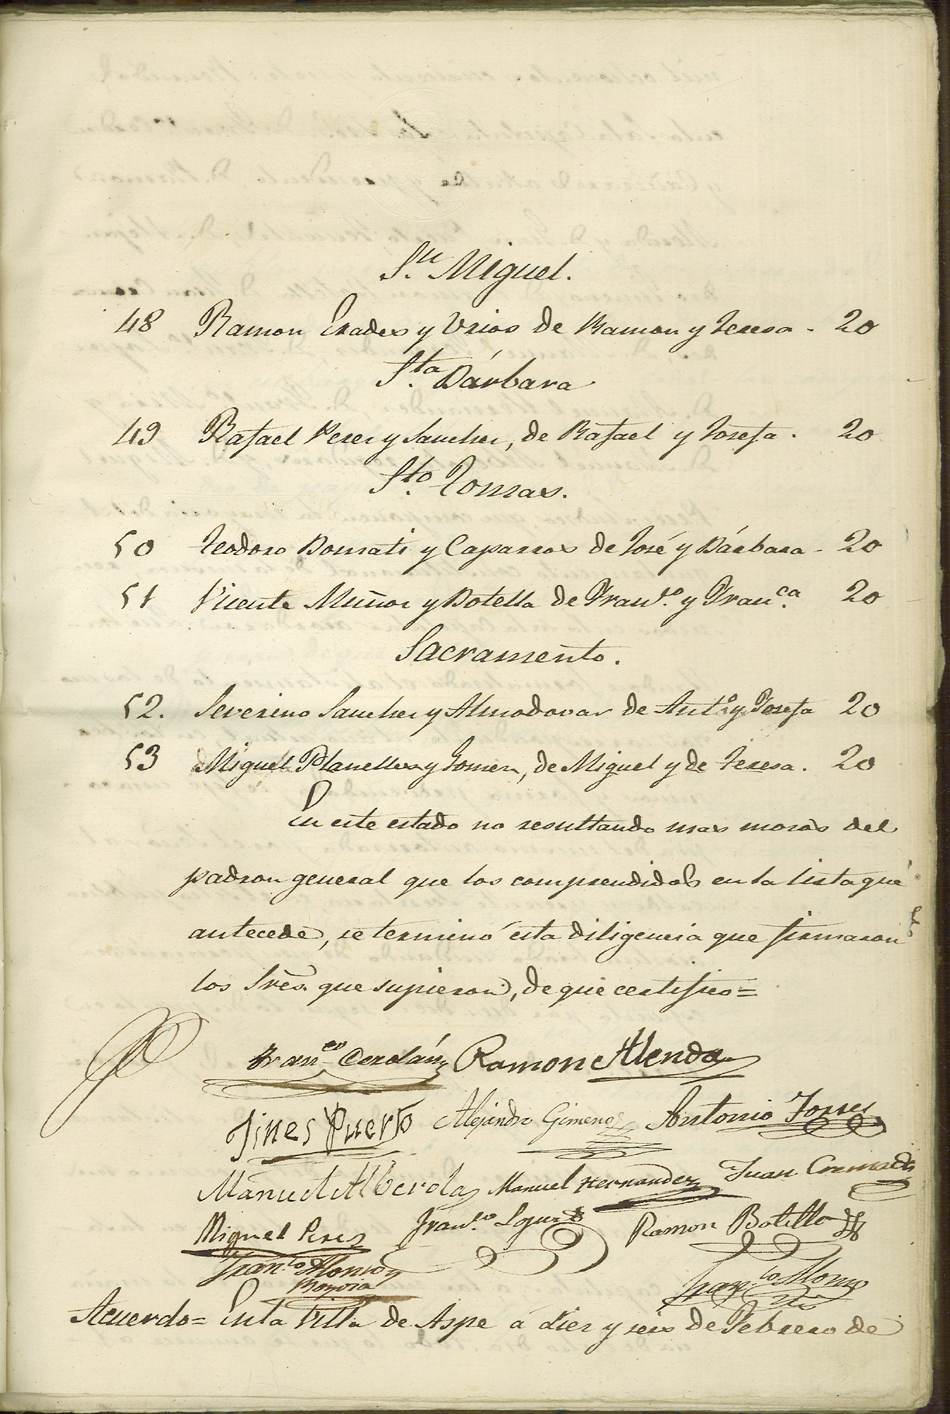 Sn. Miguel.
48 Ramon Erades y Urios de Ramon y Teresa - 20
Sta. Bárbara
49 Rafael Perez y Sanchez, de Rafael y Josefa. 20
Sto. Tomas.
50 Teodoro Bonmati y Caparros de José y Bárbara - 20
51 Vicente Muñoz y Botella de Franco. y Franca. 20
Sacramento.
52. Severino Sanchez y Almodovar de Anto. y Josefa 20
53 Miguel Planelles y Gomez, de Miguel y de Teresa. 20
En este estado no resultando mas mozos del
padron general que los comprendidos en la lista que
antecede, se terminó esta diligencia que firmaron
los Sres. que supieron, de que certifico =
Franco Cerdán Ramon Alenda
Jines Puerto Alejandro Gimenez Antonio Torres
Manuel Alberola Manuel Hernandez Juan Cremades
Miguel Perez Franco. Ramon Botella
Franco Alonso
Franco Alonso
Acuerdo = En la Villa de Aspe á diez y seis de Febrero de